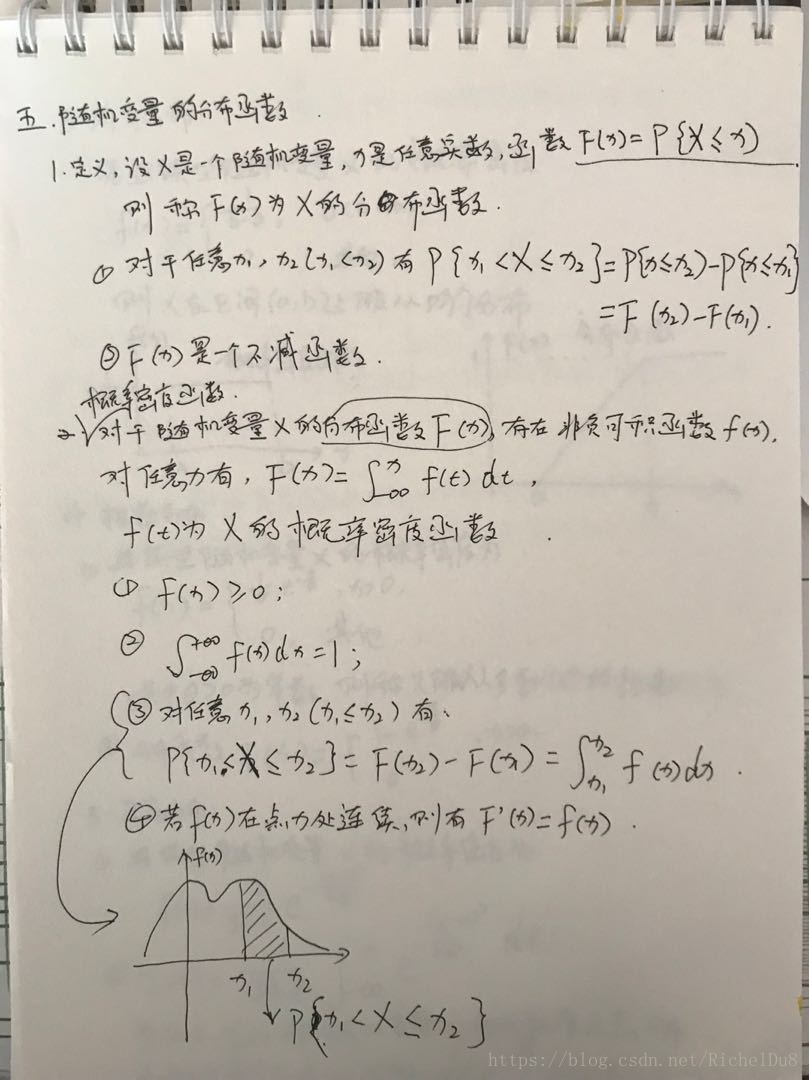 五.随机变量的分布函数.
1.定义,设X是一个随机变量,x是任意实数,函数F(x)=P{X≤x)
则称F(x)为X的分布函数.
① 对于任意x₁,x₂(x₁<x₂)有P{x₁<X≤x₂}=P{x≤x₂)-P{x≤x₁}
=F(x₂)-F(x₁).
② F(x)是一个不减函数.
概率密度函数.
2.对于随机变量X的分布函数F(x),存在非负可积函数f(x),
对任意x有,F(x)=∫_{-∞}^{x} f(t)dt,
f(t)为X的概率密度函数.
① f(x)≥0;
② ∫_{-∞}^{+∞} f(x)dx=1;
③ 对任意x₁,x₂(x₁≤x₂)有:
P{x₁<X≤x₂}=F(x₂)-F(x₁)=∫_{x₁}^{x₂} f(x)dx.
④ 若f(x)在点x处连续,则有F'(x)=f(x).
f(x)
x₁ x₂
P{x₁<X≤x₂}
https://blog.csdn.net/RichelDu8